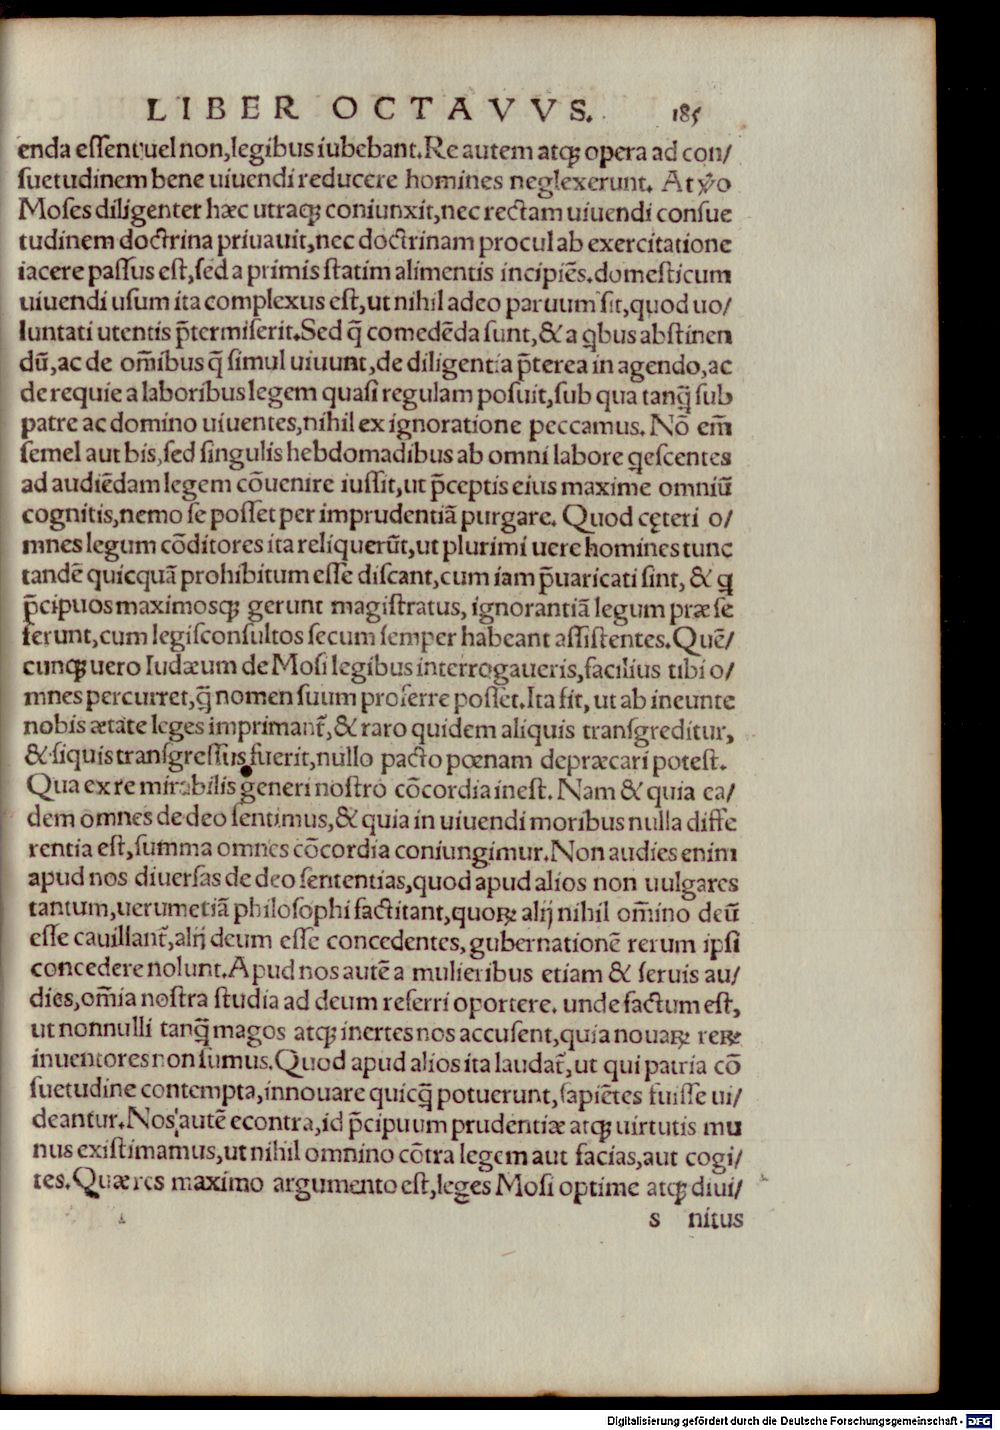 LIBER OCTAVVS. 185
enda essent uel non, legibus iubebant. Re autem atqꝫ opera ad con/
suetudinem bene uiuendi reducere homines neglexerunt. At ṽo
Moses diligenter hæc utraqꝫ coniunxit, nec rectam uiuendi consue
tudinem doctrina priuauit, nec doctrinam procul ab exercitatione
iacere passus est, sed a primis statim alimentis incipiẽs. domesticum
uiuendi usum ita complexus est, ut nihil adeo paruum sit, quod uo/
luntati utentis p̃termiserit. Sed q̃ comedẽda sunt, & a qbus abstinen
dũ, ac de om̃ibus q̃ simul uiuunt, de diligentia p̃terea in agendo, ac
de requie a laboribus legem quasi regulam posuit, sub qua tanq̃ sub
patre ac domino uiuentes, nihil ex ignoratione peccamus. Nõ em̃
semel aut bis, sed singulis hebdomadibus ab omni labore qescentes
ad audiẽdam legem cõuenire iussit, ut p̃ceptis eius maxime omniũ
cognitis, nemo se posset per imprudentiã purgare. Quod cęteri o/
mnes legum cõditores ita reliquerũt, ut plurimi uere homines tunc
tandẽ quicquã prohibitum esse discant, cum iam p̃uaricati sint, & q
p̃cipuos maximosqꝫ gerunt magistratus, ignorantiã legum præ se
ferunt, cum legisconsultos secum semper habeant assistentes. Quẽ/
cunqꝫ uero Iudæum de Mosi legibus interrogaueris, facilius tibi o/
mnes percurret, q̃ nomen suum proferre posset. Ita fit, ut ab ineunte
nobis ætate leges imprimant᷑, & raro quidem aliquis transgreditur,
& siquis transgressus fuerit, nullo pacto pœnam depræcari potest.
Qua ex re mirabilis generi nostro cõcordia inest. Nam & quia ea/
dem omnes de deo sentimus, & quia in uiuendi moribus nulla diffe
rentia est, summa omnes cõcordia coniungimur. Non audies enim
apud nos diuersas de deo sententias, quod apud alios non uulgares
tantum, uerumetiã philosophi factitant, quoꝝ alij nihil om̃ino deũ
esse cauillant᷑, alij deum esse concedentes, gubernationẽ rerum ipsi
concedere nolunt. Apud nos autẽ a mulieribus etiam & seruis au/
dies, om̃ia nostra studia ad deum referri oportere. unde factum est,
ut nonnulli tanq̃ magos atqꝫ inertes nos accusent, quia nouaꝝ reꝝ
inuentores non sumus. Quod apud alios ita laudat᷑, ut qui patria cõ
suetudine contempta, innouare quicq̃ potuerunt, sapiẽtes fuisse ui/
deantur. Nos autẽ econtra, id p̃cipuum prudentiæ atqꝫ uirtutis mu
nus existimamus, ut nihil omnino cõtra legem aut facias, aut cogi/
tes. Quæ res maximo argumento est, leges Mosi optime atqꝫ diui/
s nitus
Digitalisierung gefördert durch die Deutsche Forschungsgemeinschaft - DFG